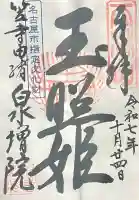 奉拝
令和七年
十月廿四日
玉照姫
名古屋市指定文化財
笠寺由緒泉増院